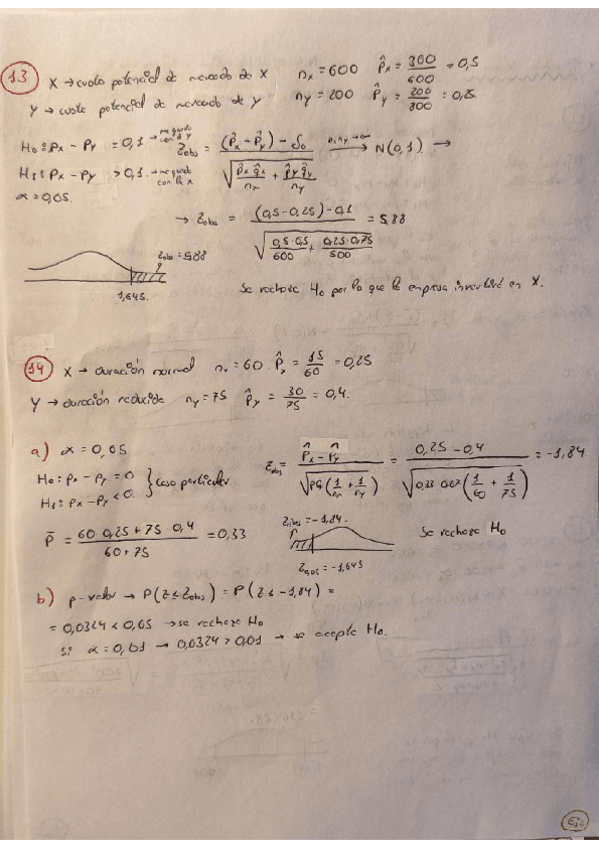 13 X → cuota potencial de mercado de X   n_x = 600   p̂_x = 300/600 = 0,5
Y → cuota potencial de mercado de Y   n_y = 200   p̂_y = 200/800 = 0,25
H₀: p_x - p_y = 0,1 → me quedo con la y   Z_obs = ((p̂_x - p̂_y) - δ₀) / √(p̂_x q̂_x / n_x + p̂_y q̂_y / n_y) → N(0,1) →
H₁: p_x - p_y > 0,1 → me quedo con la x
α = 0,05.
→ Z_obs = ((0,5-0,25)-0,1) / √(0,5·0,5/600 + 0,25·0,75/500) = 5,88
Z_obs = 5,88
1,645.
Se rechaza H₀ por lo que la empresa invertirá en X.
14 X → duración normal   n_x = 60   p̂_x = 15/60 = 0,25
Y → duración reducida   n_y = 75   p̂_y = 30/75 = 0,4.
a) α = 0,05
H₀: p_x - p_y = 0
H₁: p_x - p_y < 0. } Caso particular
Z_obs = (p̂_x - p̂_y) / √(p̄q̄(1/n_x + 1/n_y)) = (0,25 - 0,4) / √(0,33·0,67(1/60 + 1/75)) = -1,84
p̄ = (60·0,25 + 75·0,4) / (60+75) = 0,33
Z_obs = -1,84.
Z_0,05 = -1,645
Se rechaza H₀
b) p-valor → P(Z ≤ Z_obs) = P(Z ≤ -1,84) =
= 0,0324 < 0,05 → se rechaza H₀
Si α = 0,01 → 0,0324 > 0,01 → se acepta H₀.